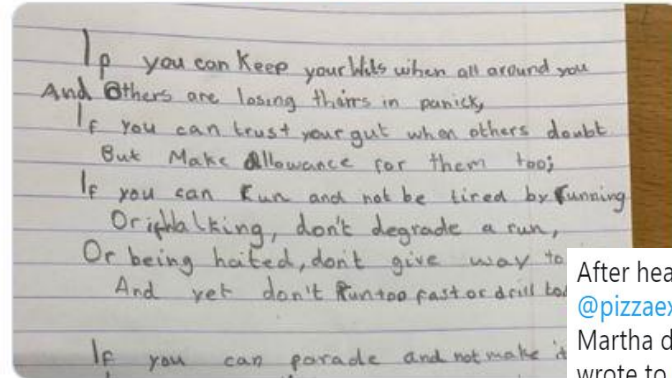 If you can Keep your Wits when all around you
And Others are losing theirs in panick,
If you can trust your gut when others doubt
But Make Allowance for them too;
If you can Run and not be tired by Running
Or if Walking, don't degrade a run,
Or being haited, don't give way to
And yet don't Run too fast or drill too
If you can parade and not make it
After hea
@pizzaex
Martha d
wrote to